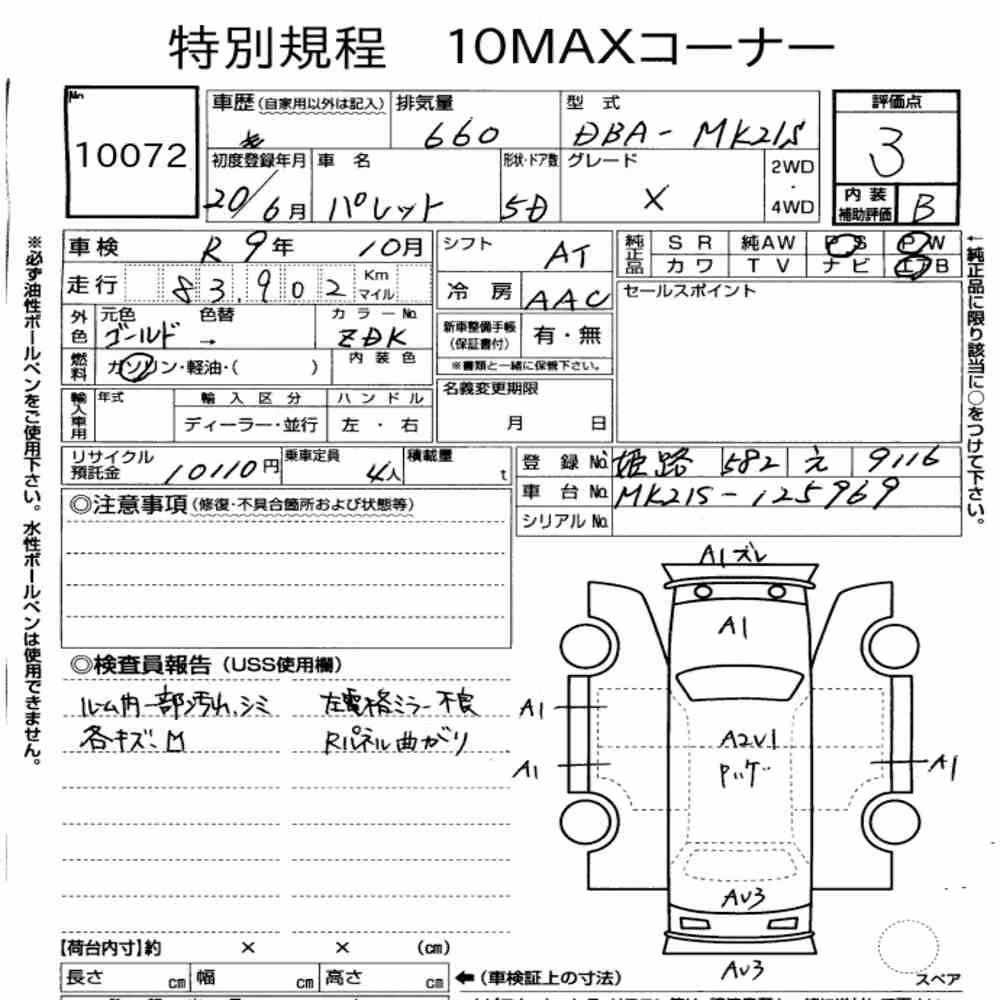 特別規程 10MAXコーナー
No.
10072
車歴(自家用以外は記入)
排気量
660
型式
DBA-MK21S
評価点
3
初度登録年月
20/6月
車名
パレット
形状・ドア数
5D
グレード
X
2WD
・
4WD
内装
補助評価
B
車検 R9年 10月
走行 83,902 Km
マイル
外色
元色
ゴールド →
色替
カラーNo.
ZDK
燃料
ガソリン・軽油・( )
内装色
輸入車用
年式
輸入区分
ディーラー・並行
ハンドル
左・右
シフト
AT
冷房
AAC
新車整備手帳
(保証書付)
有・無
※書類と一緒に保管下さい。
名義変更期限
月 日
純正品
SR 純AW PS PW
カワ TV ナビ エアB
セールスポイント
リサイクル
預託金
10110円
乗車定員
4人
積載量
t
登録No. 姫路 582 え 9116
車台No. MK21S-125969
シリアルNo.
◎注意事項(修復・不具合箇所および状態等)
◎検査員報告(USS使用欄)
ルーム内一部汚れ、シミ
各キズ凹
左電格ミラー不良
Rパネル曲がり
A1ズレ
A1
A1
A1
A2V1
Pハゲ
A1
AV3
AV3
スペア
【荷台内寸】約 × × (cm)
長さ cm 幅 cm 高さ cm ←(車検証上の寸法)
※必ず油性ボールペンをご使用下さい。水性ボールペンは使用できません。
←純正品に限り該当に○をつけて下さい。